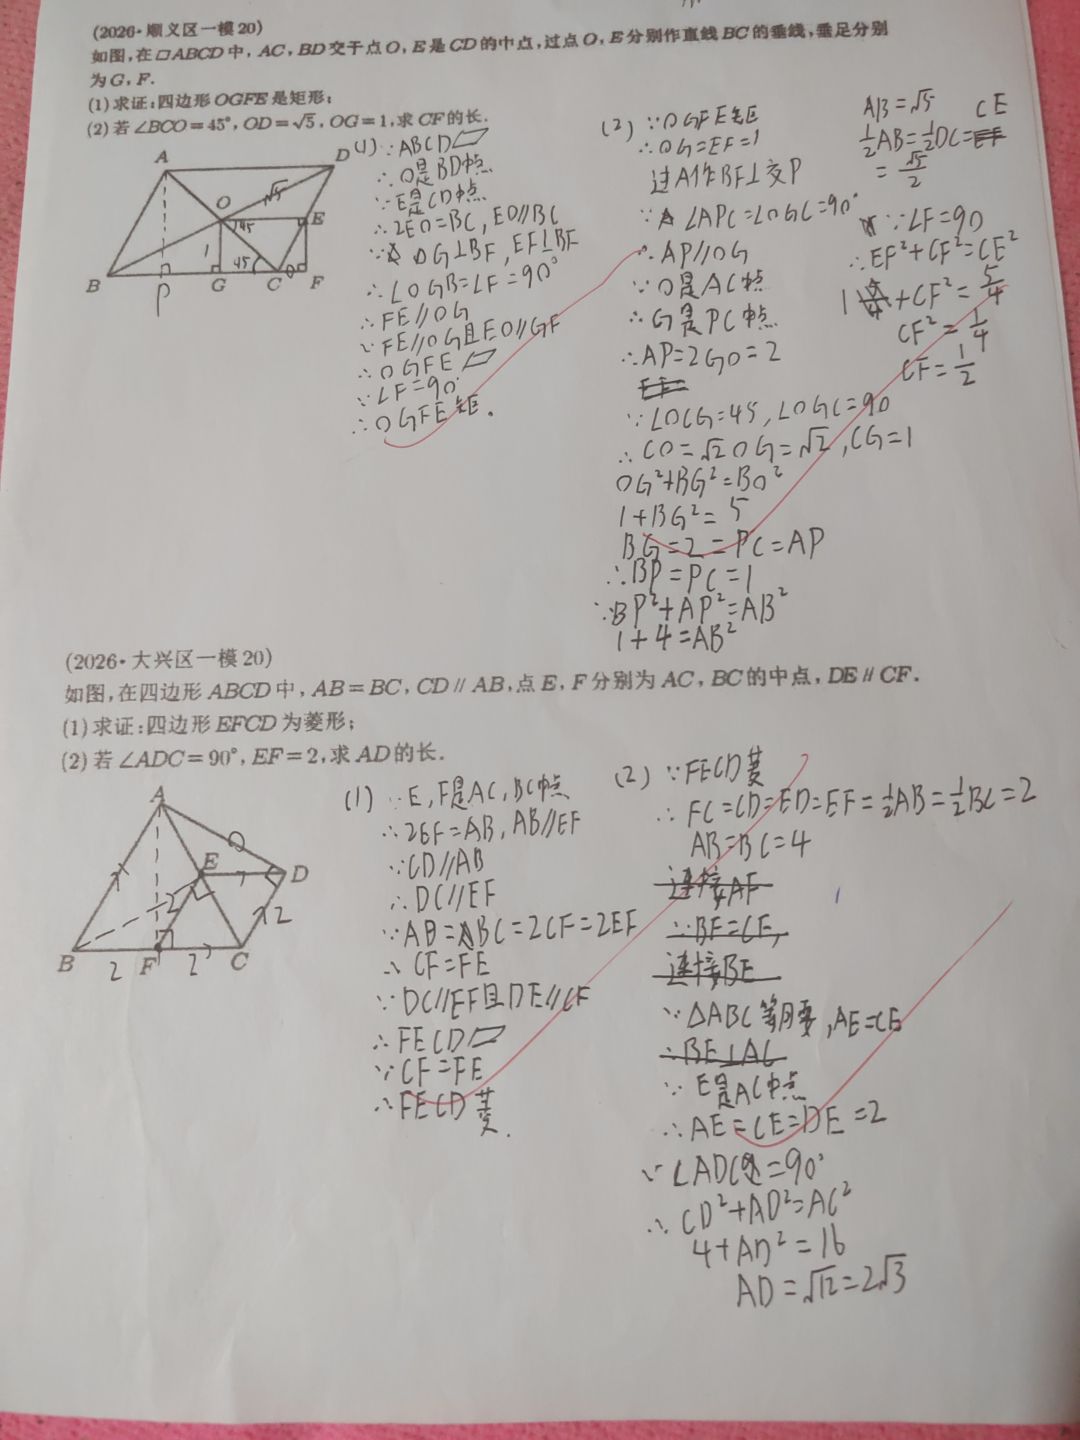 (2026·顺义区一模20)
如图,在▱ABCD中,AC,BD交于点O,E是CD的中点,过点O,E分别作直线BC的垂线,垂足分别
为G,F.
(1)求证:四边形OGFE是矩形;
(2)若∠BCO=45°,OD=√5,OG=1,求CF的长.
A
D
O
√5
45
E
1
45
B
P
G
C
F
(1) ∵ABCD▱
∴O是BD中点
∵E是CD中点
∴2EO=BC, EO∥BC
∵OG⊥BF, EF⊥BF
∴∠OGB=∠F=90°
∴FE∥OG
∵FE∥OG且EO∥GF
∴OGFE▱
∵∠F=90°
∴OGFE矩.
(2) ∵OGFE矩
∴OG=EF=1
过A作BF⊥交P
∵∠APC=∠OGC=90°
∴AP∥OG
∵O是AC中点
∴G是PC中点
∴AP=2GO=2
∵∠OCG=45, ∠OGC=90
∴CO=√2OG=√2, CG=1
OG²+BG²=BO²
1+BG²=5
BG=2=PC=AP
∴BP=PC=1
∵BP²+AP²=AB²
1+4=AB²
AB=√5
CE
½AB=½DC=EF
=√5/2
∵∠F=90
∴EF²+CF²=CE²
1+CF²=5/4
CF²=1/4
CF=1/2
(2026·大兴区一模20)
如图,在四边形ABCD中,AB=BC,CD∥AB,点E,F分别为AC,BC的中点,DE∥CF.
(1)求证:四边形EFCD为菱形;
(2)若∠ADC=90°,EF=2,求AD的长.
A
E
D
2
2
B
2
F
2
C
(1) ∵E,F是AC,BC中点
∴2EF=AB, AB∥EF
∵CD∥AB
∴DC∥EF
∵AB=BC=2CF=2EF
∴CF=FE
∵DC∥EF且DE∥CF
∴FECD▱
∵CF=FE
∴FECD菱.
(2) ∵FECD菱
∴FC=CD=ED=EF=½AB=½BC=2
AB=BC=4
连接AF
∵BF=CF,
连接BE
∵△ABC等腰, AE=CE
∴BE⊥AC
∵E是AC中点
∴AE=CE=DE=2
∵∠ADC=90°
∴CD²+AD²=AC²
4+AD²=16
AD=√12=2√3